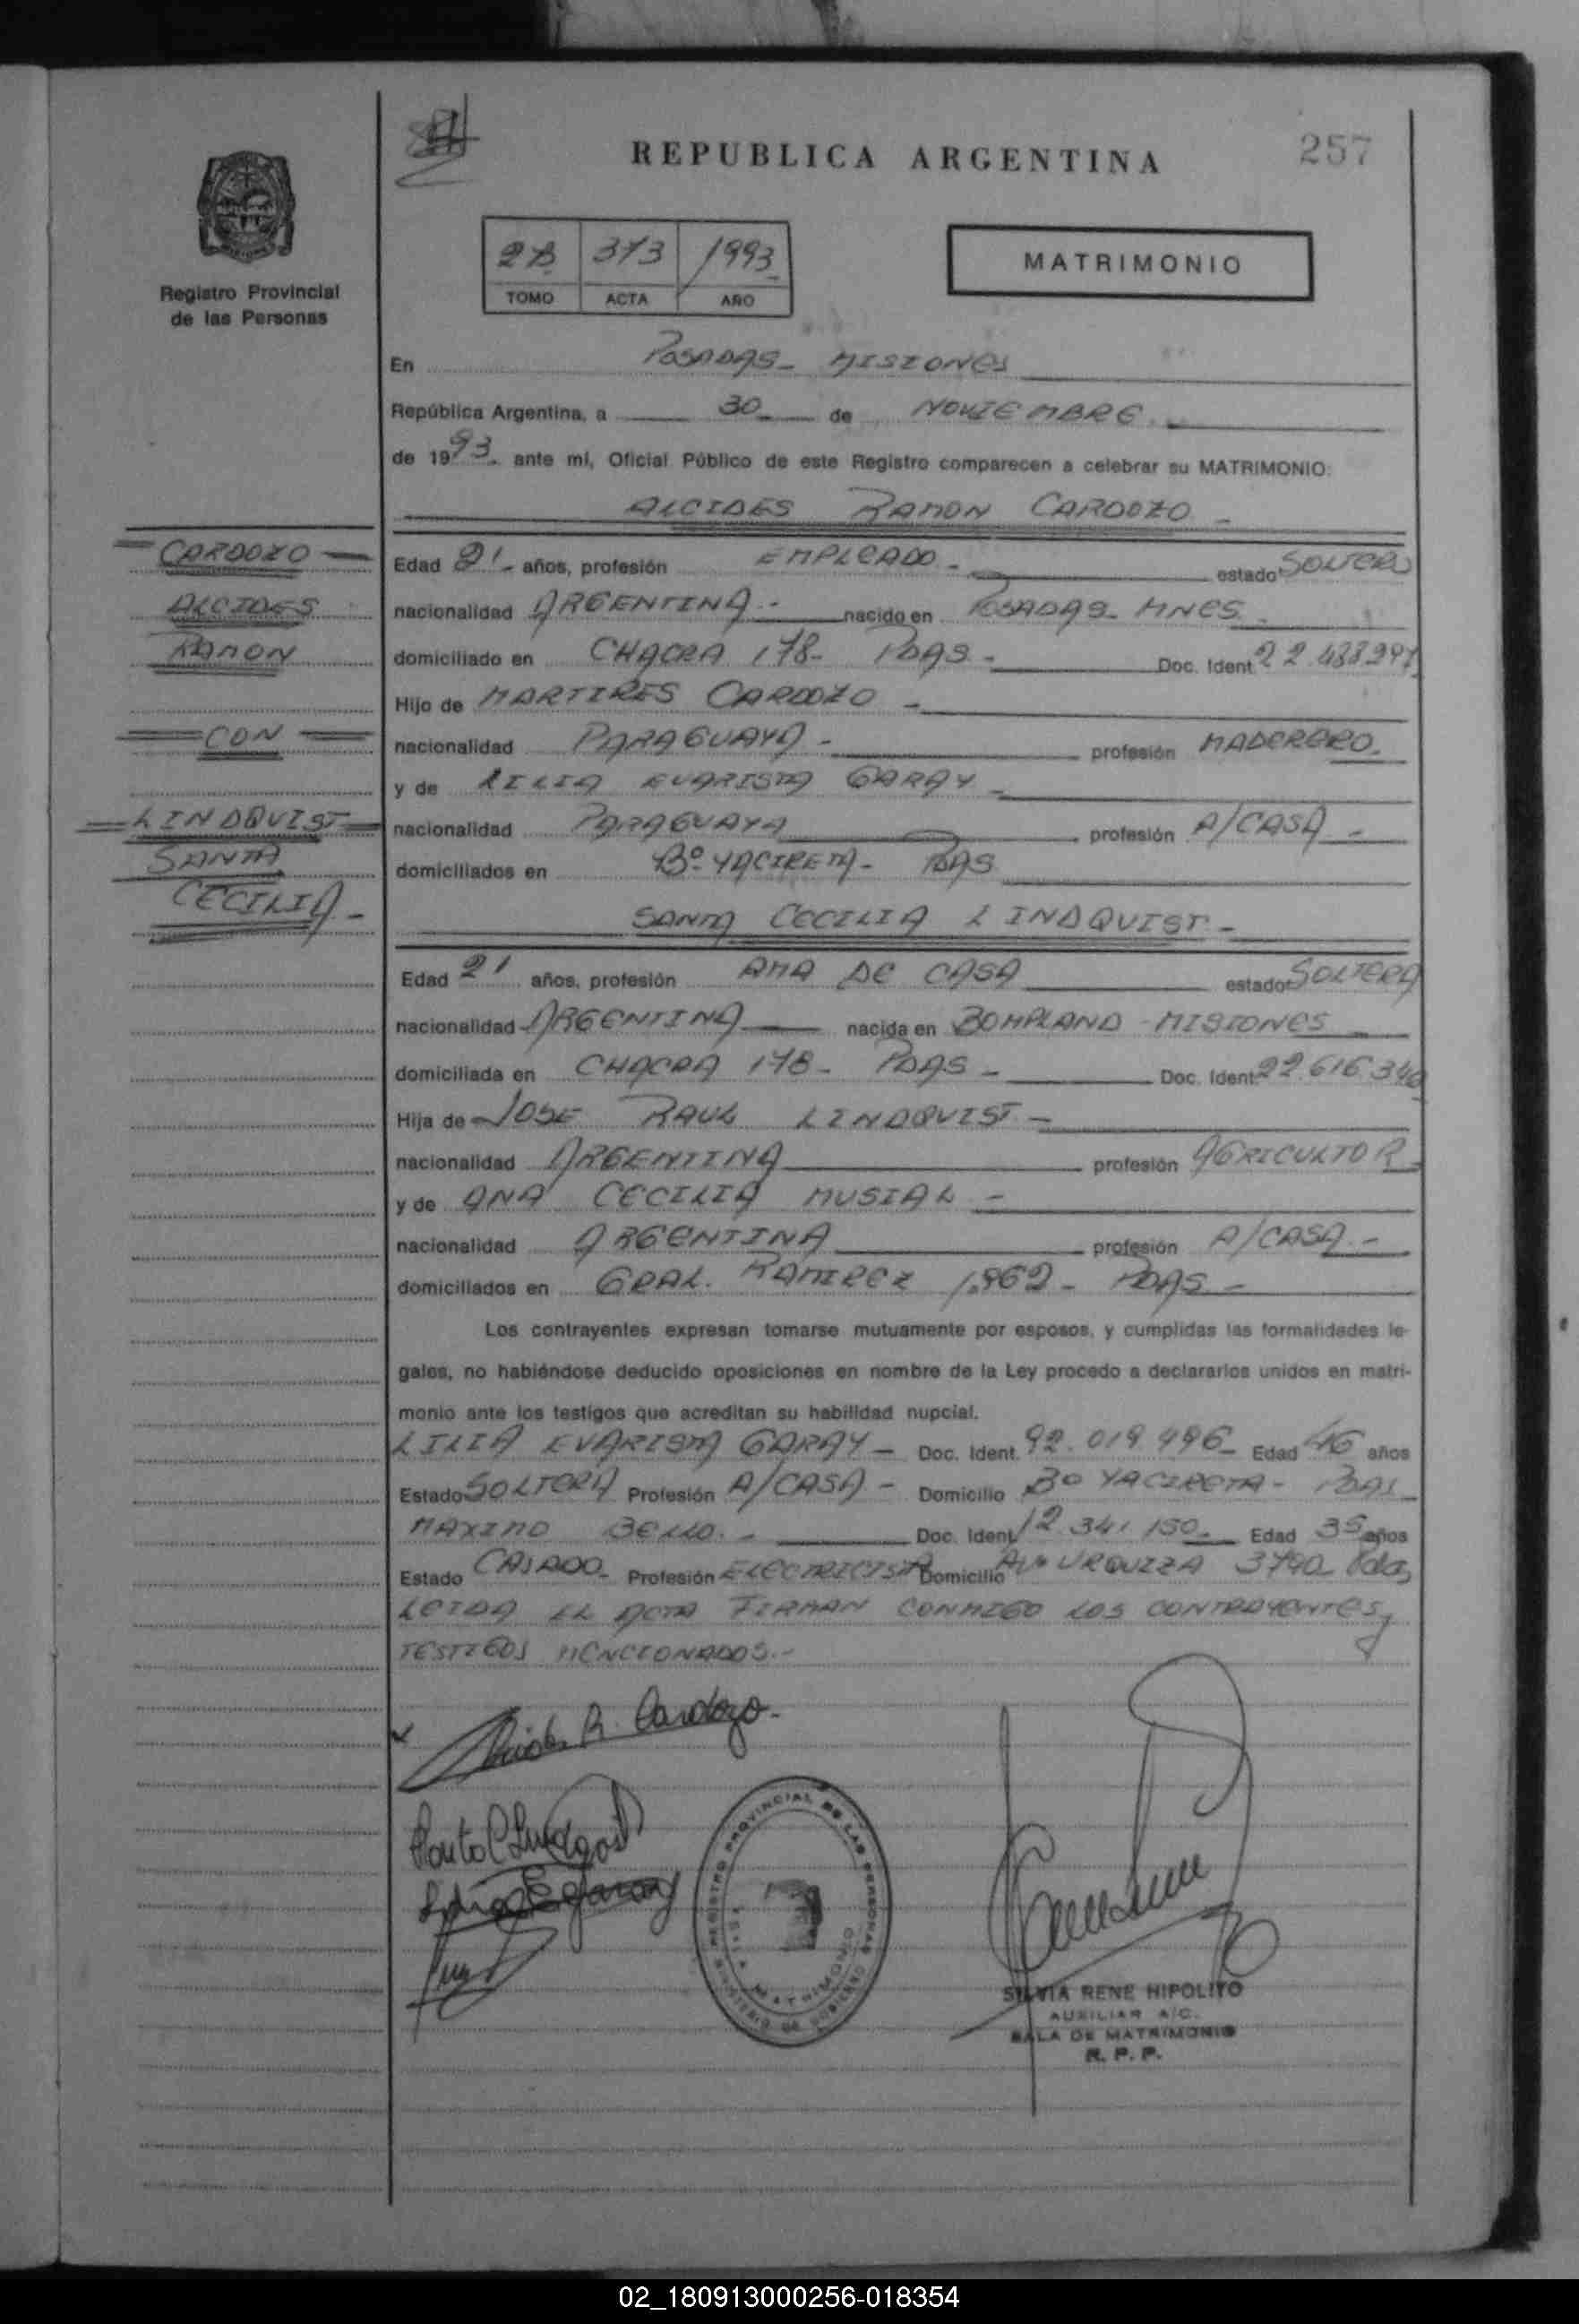 257
REPUBLICA ARGENTINA
2B 373 1993
TOMO ACTA AÑO
MATRIMONIO
Registro Provincial
de las Personas
En POSADAS - MISIONES
República Argentina, a 30 de NOVIEMBRE.
de 1993. ante mí, Oficial Público de este Registro comparecen a celebrar su MATRIMONIO:
ALCIDES RAMON CARDOZO -
CARDOZO
ALCIDES
RAMON
CON
LINDQUIST
SANTA
CECILIA -
Edad 21 - años, profesión EMPLEADO - estado SOLTERO
nacionalidad ARGENTINA - nacido en POSADAS - MNES
domiciliado en CHACRA 178 - PDAS - Doc. Ident. 22.488.291
Hijo de MARTIRES CARDOZO -
nacionalidad PARAGUAYA - profesión MADERERO.
y de LILIA EVARISTA GARAY -
nacionalidad PARAGUAYA profesión A/CASA -
domiciliados en Bº YACIRETA - PDAS
SANTA CECILIA LINDQUIST -
Edad 21 años, profesión AMA DE CASA estado SOLTERA
nacionalidad ARGENTINA nacida en BOMPLAND - MISIONES
domiciliada en CHACRA 178 - PDAS - Doc. Ident. 22.616.340
Hija de JOSE RAUL LINDQUIST -
nacionalidad ARGENTINA profesión AGRICULTOR
y de ANA CECILIA MUSIAL -
nacionalidad ARGENTINA profesión A/CASA -
domiciliados en GRAL. RAMIREZ 1.962 - PDAS -
Los contrayentes expresan tomarse mutuamente por esposos, y cumplidas las formalidades le-
gales, no habiéndose deducido oposiciones en nombre de la Ley procedo a declararlos unidos en matri-
monio ante los testigos que acreditan su habilidad nupcial.
LILIA EVARISTA GARAY - Doc. Ident. 92.019.496 - Edad 46 años
Estado SOLTERA Profesión A/CASA - Domicilio Bº YACIRETA - PDAS
MAXIMO BELLO. - Doc. Ident. 12.341.150 - Edad 35 años
Estado CASADO - Profesión ELECTRICISTA Domicilio AV. URQUIZA 3790 Pdas
LEIDA EL ACTA FIRMAN CONMIGO LOS CONTRAYENTES y
TESTIGOS MENCIONADOS. -
Alcides R. Cardozo.
REGISTRO PROVINCIAL DE LAS PERSONAS
MINISTERIO DE GOBIERNO
SALA MATRIMONIO
SILVIA RENE HIPOLITO
AUXILIAR A/C.
SALA DE MATRIMONIO
R. P. P.
02_180913000256-018354